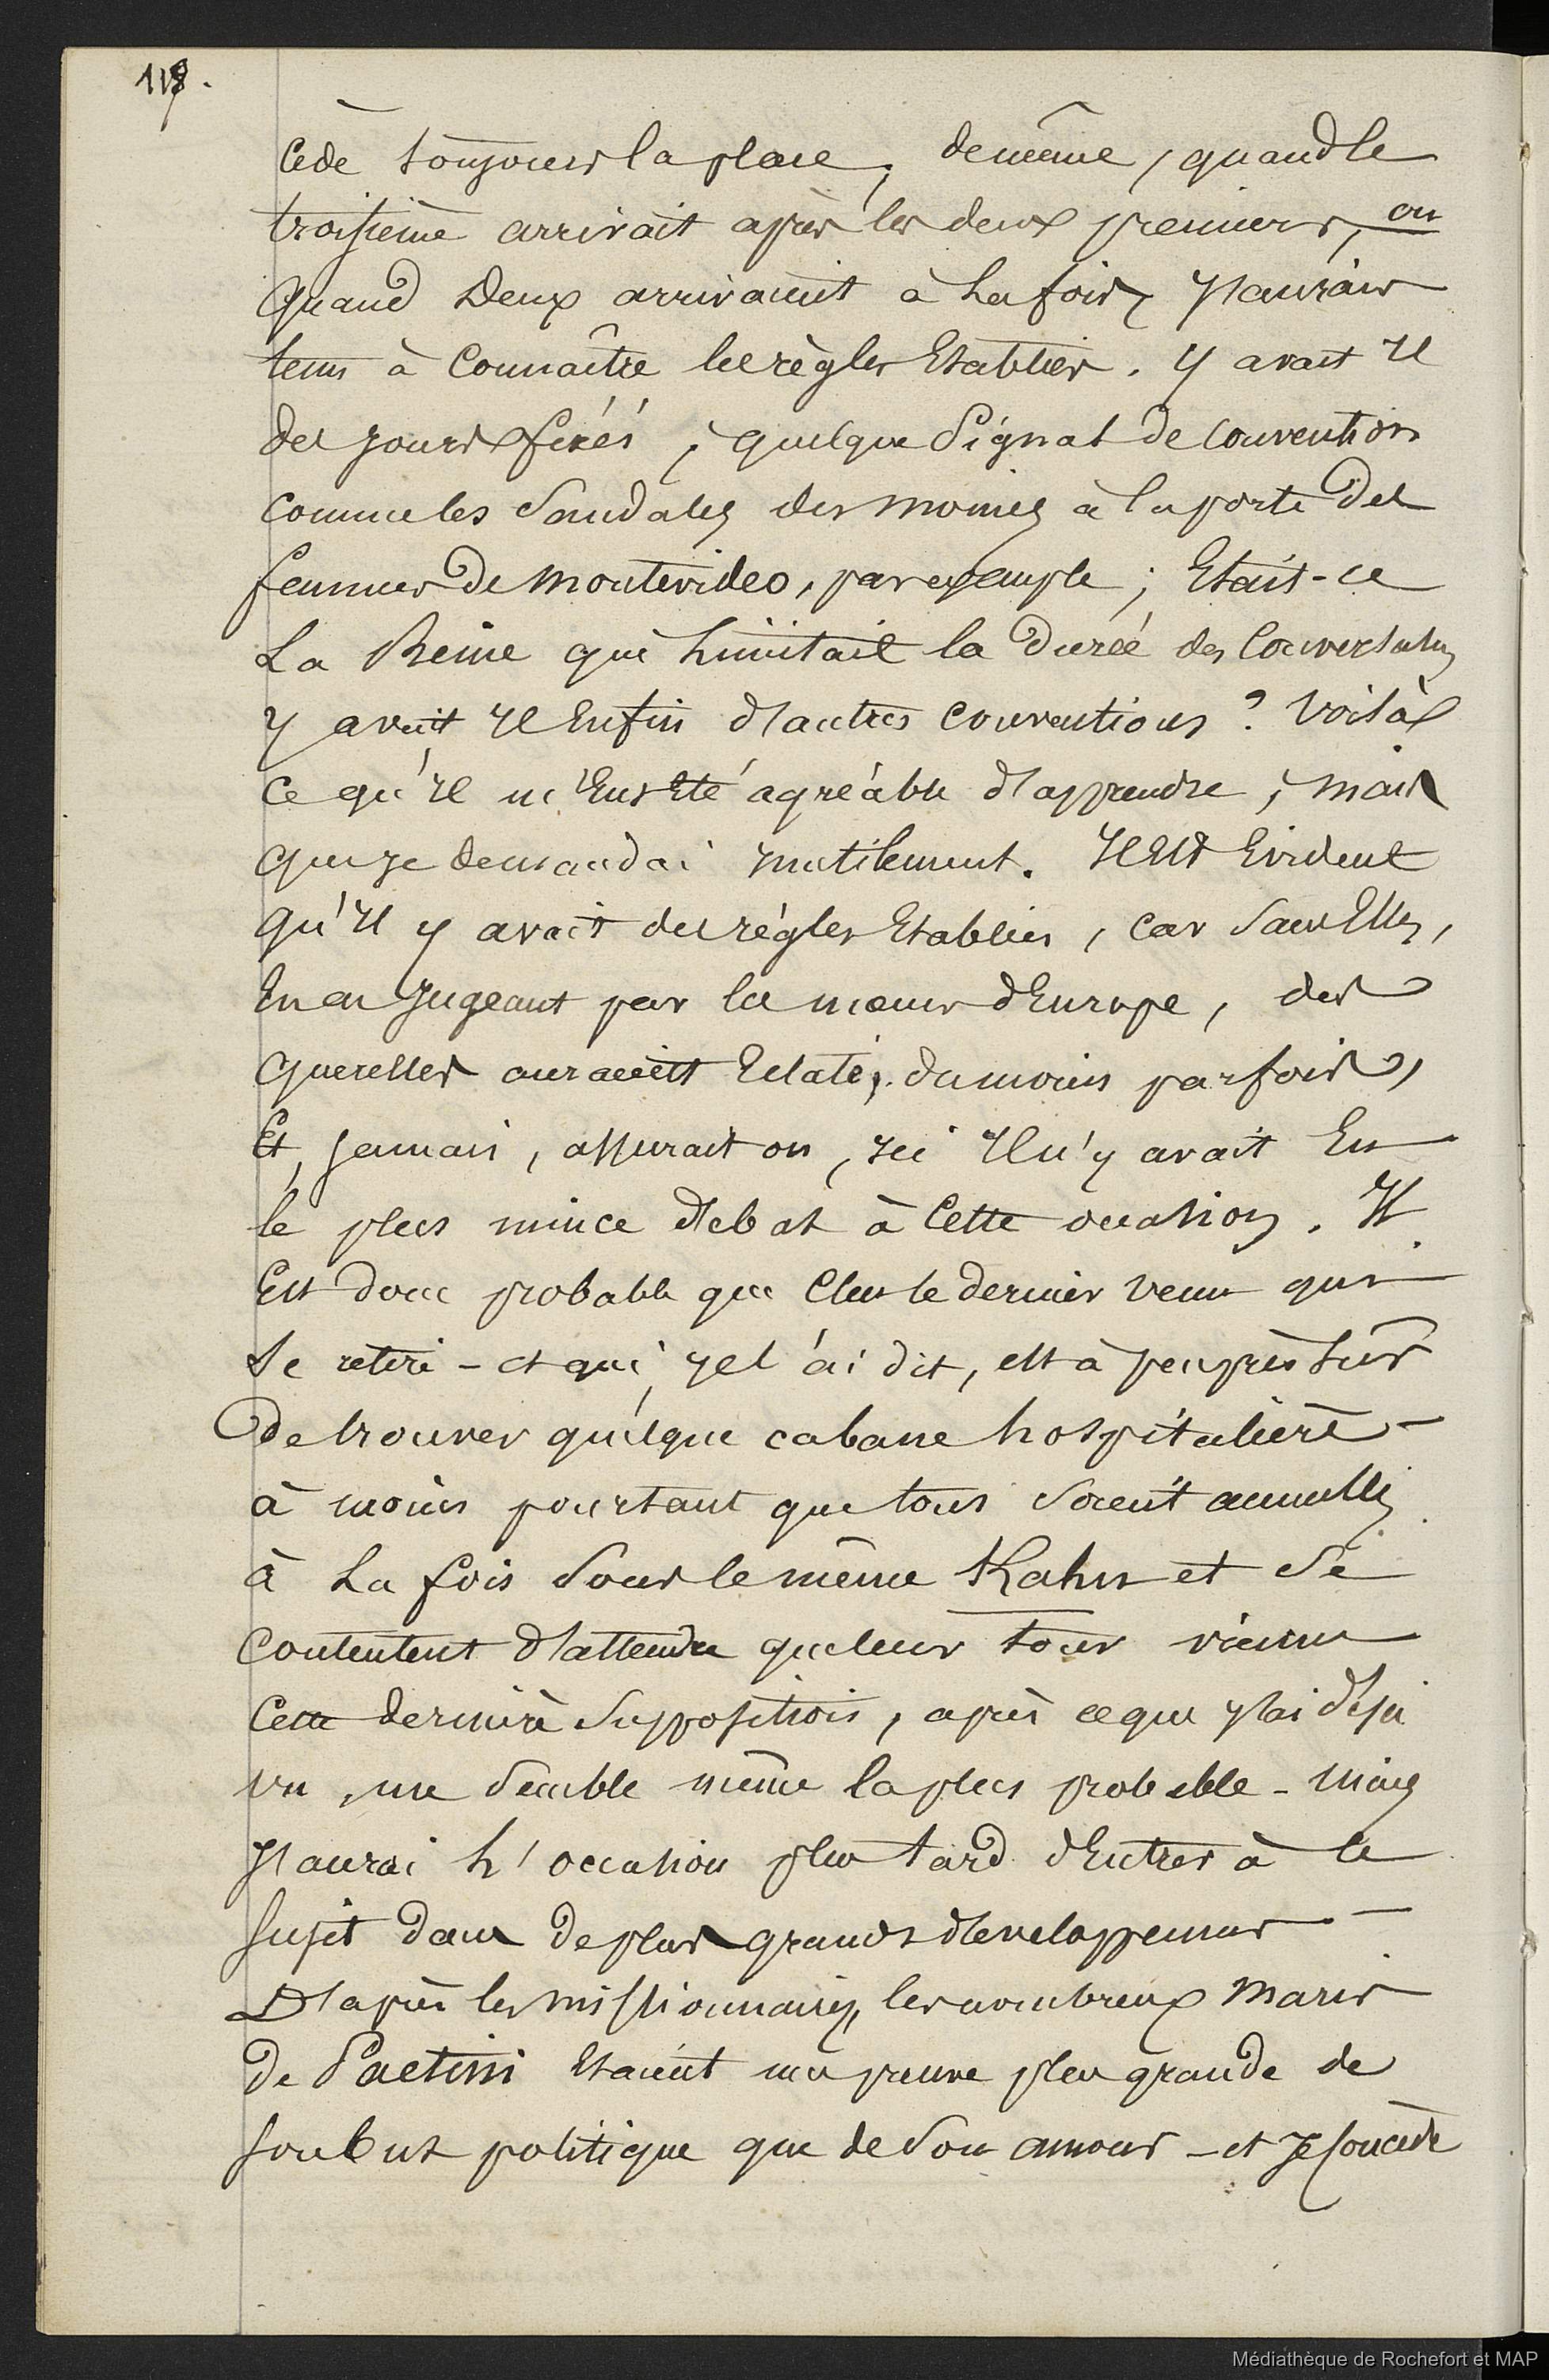 118.
cède toujours la place, de même, quand le
troisième arrivait après les deux premiers, ou
quand deux arrivaient à la fois, J'aurais
tenu à connaître les règles Etablies. Y avait Il
des jours fixés, quelque signal de convention
comme les sandales des moines à la porte des
femmes de Montevideo, par exemple ; Etait-ce
La Reine qui limitait la durée des
y avait Il Enfin d'autres conventions ? Voilà
Ce qu'Il m'Eut Eté agréable d'apprendre, mais
que je demandai Inutilement. Il Est Evident
qu'Il y avait des règles Etablies, car sans Elles,
En en Jugeant par les mœurs d'Europe, des
querelles auraient Eclaté, du moins parfois,
Et, jamais, assurait on, Ici Il n'y avait Eu
le plus mince débat à cette occasion. Il
Est donc probable que c'est le dernier venu qui
se retire - et qui, Je l'ai dit, est à peu près sûr
de trouver quelque cabane hospitalière -
à moins pourtant que tous soient accueillis
à La fois sous le même Kahu et se
contentent d'attendre que leur tour vienne
Cette dernière supposition, après ce que J'ai déjà
vu, me semble même la plus probable - mais
J'aurai l'occasion plus tard d'Entrer à ce
sujet dans de plus grands développemens -
D'après les missionnaires, les nombreux maris
de Paetini Etaient une preuve plus grande de
son but politique que de son amour - et Je concède
Médiathèque de Rochefort et MAP